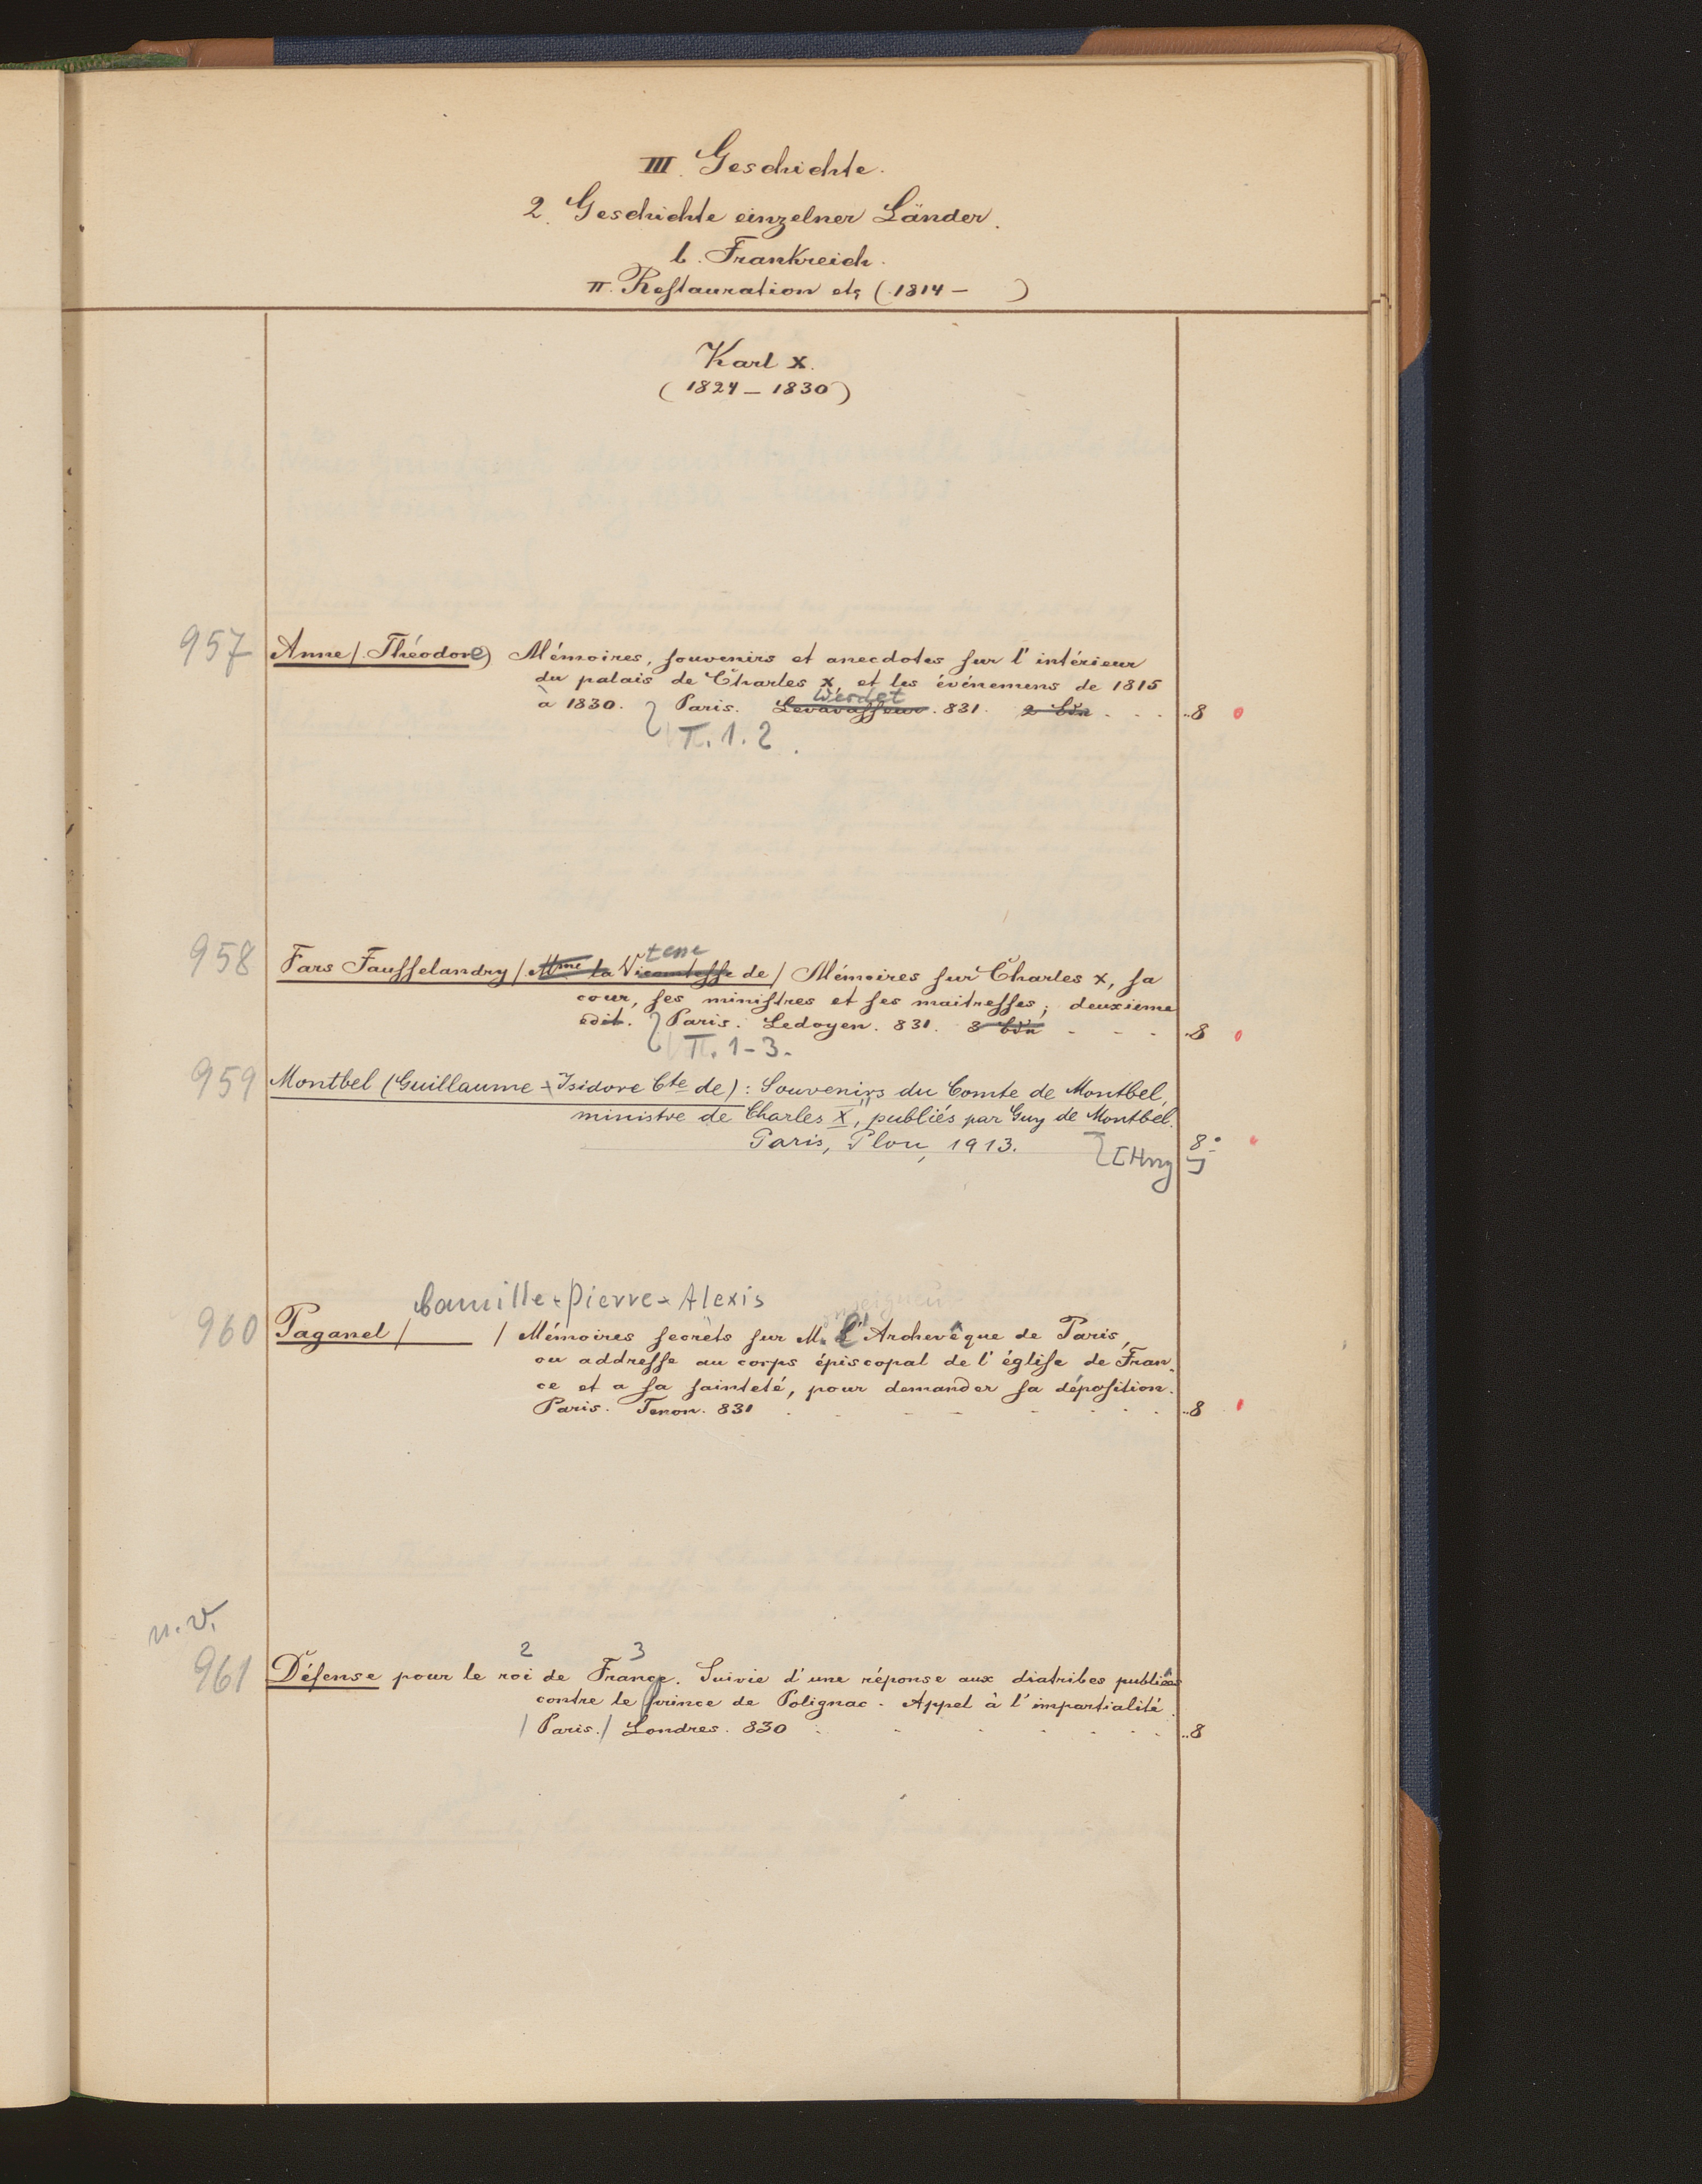 III. Geschichte.
2. Geschichte einzelner Länder.
b. Frankreich.
II. Restauration etc (1814 – )
Karl X.
(1824 – 1830)
957 Anne /. Théodore) Mémoires, souvenirs et anecdotes sur l'intérieur
du palais de Charles X, et les événemens de 1815
Werdet
à 1830. Paris. Levavasseur. 831. 2 Bdn . . . ..8
T. 1. 2.
tesse
958 Fars Fausselandry /. Mme la Vicomtesse de / Mémoires sur Charles X, sa
cour, ses ministres et ses maitresses; deuxieme
edit. Paris. Ledoyen. 831. 3 Bdn - - - ..8
T. 1-3.
959 Montbel (Guillaume-Isidore Cte de): Souvenirs du Comte de Montbel,
ministre de Charles X, publiés par Guy de Montbel.
Paris, Plon, 1913. 8°
Camille-Pierre-Alexis
960 Paganel / / Mémoires secrets sur M. L'Archevêque de Paris,
ou addresse au corps épiscopal de l'église de Fran-
ce et a sa sainteté, pour demander sa déposition.
Paris. Tenon. 831 . - - - - . . . ..8
n.v.
2 3
961 Défense pour le roi de France. Suivie d'une réponse aux diatribes publiées
contre le prince de Polignac. Appel à l'impartialité.
/ Paris. / Londres. 830 . . . . . . . ..8